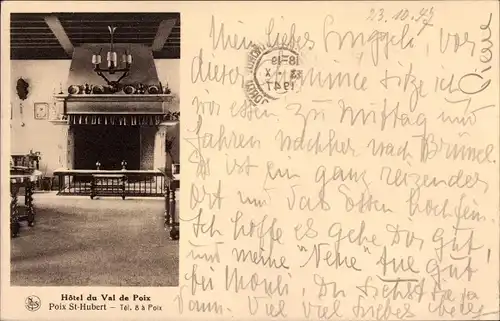 23.10.47
Mein liebes Brüggeli, vor
dieser Cheminée sitze ich
wir essen zu Mittag und
fahren nachher nach Brüssel.
Es ist ein ganz reizender
Ort und das Essen hochfein.
Ich hoffe es gehe Dir gut,
und meine "Nehe" tue gut
bei Dir siehst sie ja
dann. Viel viel liebes
18-19
1947
Hôtel du Val de Poix
Poix St-Hubert – Tél. 8 à Poix